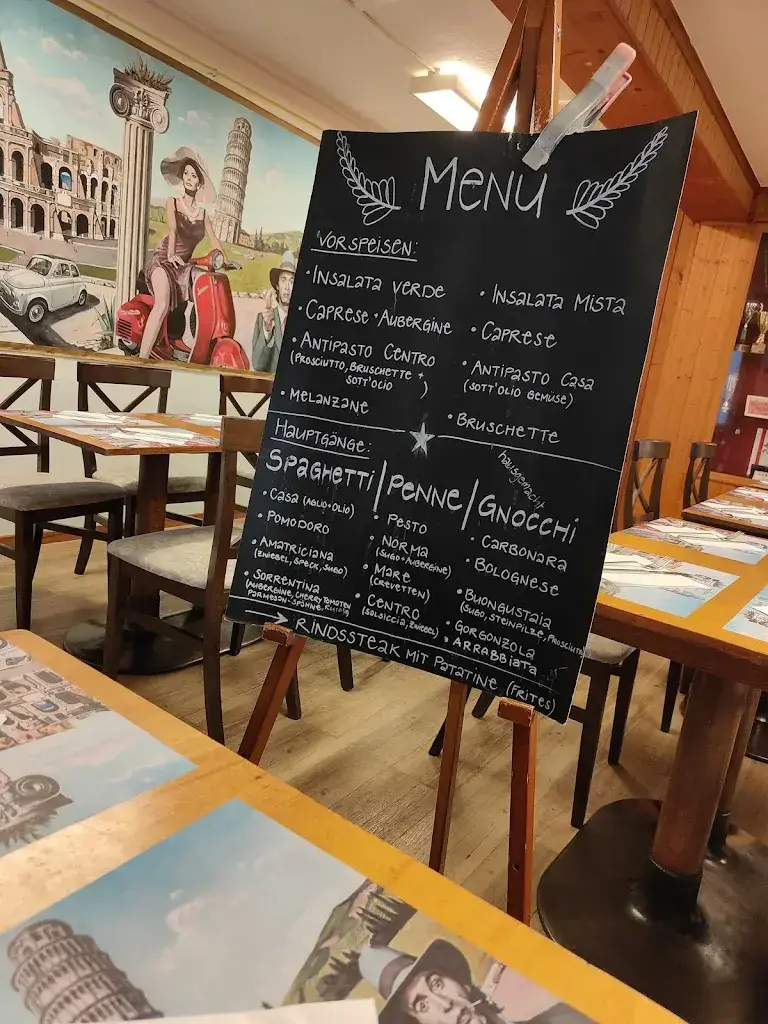 MENU
VORSPEISEN:
• INSALATA VERDE
• CAPRESE + AUBERGINE
• ANTIPASTO CENTRO
(PROSCIUTTO, BRUSCHETTE +
SOTT'OLIO )
• MELANZANE
• INSALATA MISTA
• CAPRESE
• ANTIPASTO CASA
(SOTT'OLIO GEMÜSE)
• BRUSCHETTE
HAUPTGÄNGE:
hausgemacht
SPAGHETTI/PENNE/GNOCCHI
• CASA (AGLIO+OLIO)
• POMODORO
• AMATRICIANA
(ZWIEBEL, SPECK, SUGO)
• SORRENTINA
(AUBERGINE, CHERRY TOMATEN
PARMESAN-SPÄHNE, RUCOLA)
• PESTO
• NORMA
(SUGO+AUBERGINE)
• MARE
(CREVETTEN)
• CENTRO
(SALSICCIA, ZWIEBEL)
• CARBONARA
• BOLOGNESE
• BUONGUSTAIA
(SUGO, STEINPILZE, PROSCIUTTO)
• GORGONZOLA
• ARRABBIATA
→ RINDSSTEAK MIT PATATINE (FRITES)